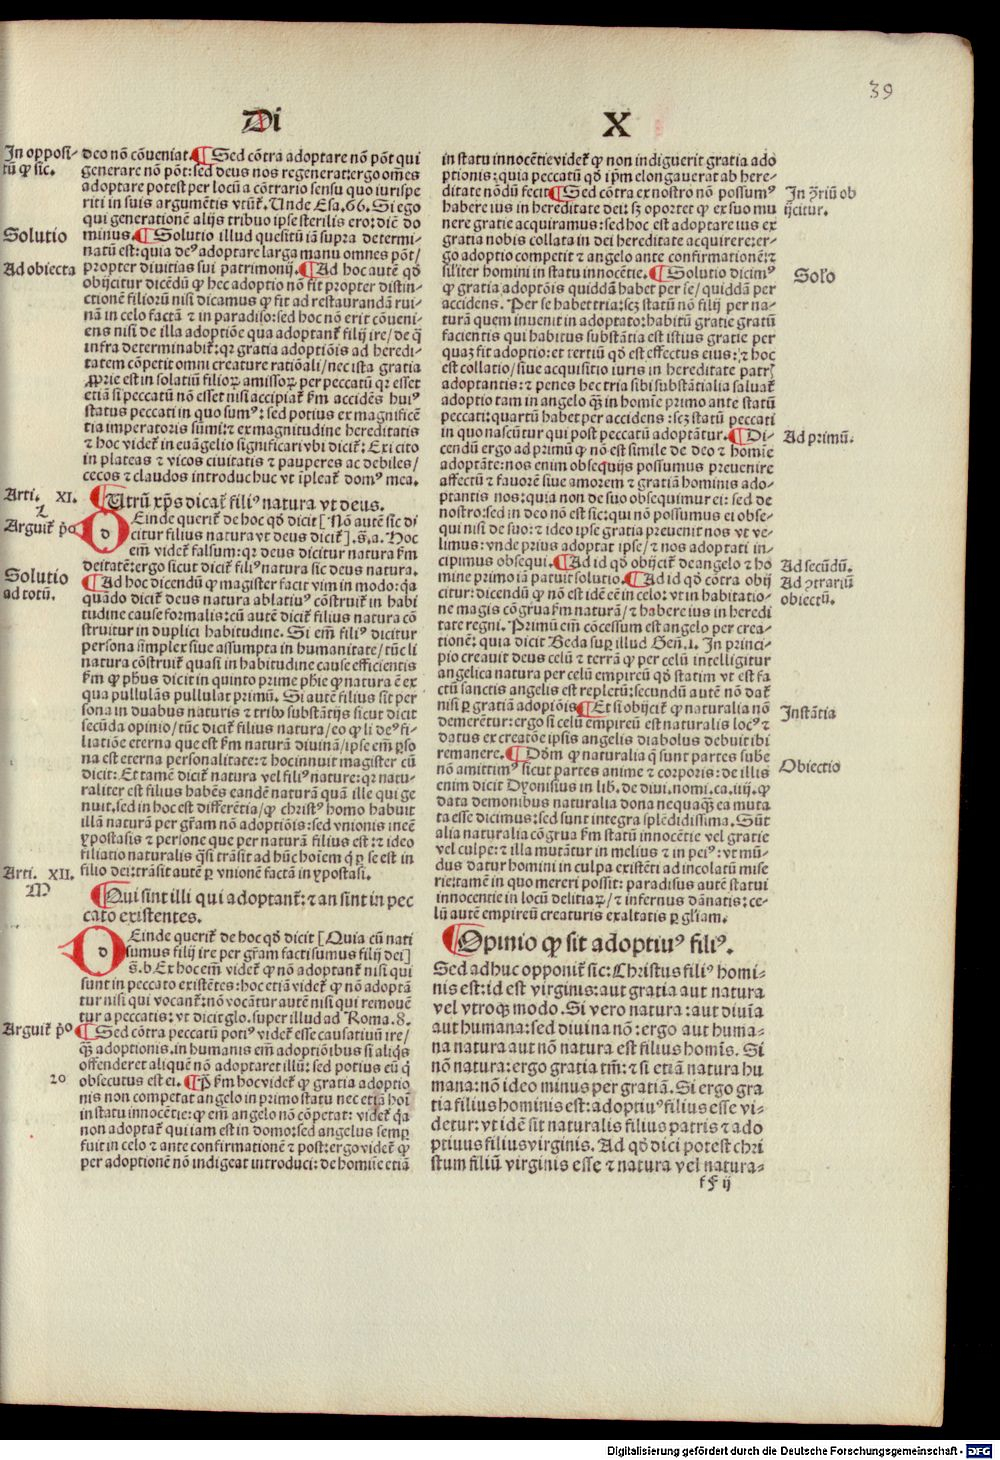 39
Di
X
In opposi-
tū ꝙ sic.
Solutio
Ad obiecta
Arti. XI.
L
Arguit̄ p̄o
Solutio
ad totū.
Arti. XII.
M
Arguit̄ p̄o
20
deo nō cōueniat. ¶ Sed cōtra adoptare nō pōt qui
generare nō pōt: sed deus nos regenerat: ergo om̄es
adoptare potest per locū a cōtrario sensu quo iurispe
riti in suis argumētis vtūt̄. Unde Esa. 66. Si ego
qui generationē alijs tribuo ipse sterilis ero: diē do
minus. ¶ Solutio illud quesitū iā supra determi-
natū est: quia deꝰ adoptare larga manu omnes pōt/
propter diuitias sui patrimonij. ¶ Ad hoc autē qď
obijcitur dicēdū ꝙ hec adoptio nō fit propter distin-
ctionē filiorū nisi dicamus ꝙ fit ad restaurandā rui-
nā in celo factā ⁊ in paradiso: sed hoc nō erit cōueni-
ens nisi de illa adoptiōe qua adoptant̄ filij ire/ de q̄
infra determinabit̄: qr gratia adoptiōis ad heredi-
tatem cōpetit omni creature ratiōali/ nec ista gratia
ꝓprie est in solatiū filioꝝ amissoꝝ per peccatū qr esset
etiā si peccatū nō esset nisi accipiat̄ ẜm accidēs huiꝰ
status peccati in quo sumꝰ: sed potius ex magnificē
tia imperatoris sūmi: ⁊ ex magnitudine hereditatis
⁊ hoc videt̄ in euāgelio significari vbi dicit̄: Exi cito
in plateas ⁊ vicos ciuitatis ⁊ pauperes ac debiles/
cecos ⁊ claudos introduc huc vt ipleat̄ domꝰ mea.
¶ Utrū xp̄s dicat̄ filiꝰ natura vt deus.
d Einde querit̄ de hoc qď dicit [ Nō autē sic di
citur filius natura vt deus dicit̄ ]. s̄. a. Hoc
em̄ videt̄ falsum: qr deus dicitur natura ẜm
deitatē: ergo sicut dicit̄ filiꝰ natura sic deus natura.
¶ Ad hoc dicendū ꝙ magister facit vim in modo: qa
quādo dicit̄ deus natura ablatiuꝰ cōstruit̄ in habi
tudine cause formalis: cū autē dicit̄ filius natura cō
struitur in duplici habitudine. Si em̄ filiꝰ dicitur
persona simplex siue assumpta in humanitate/ tūc li
natura cōstruit̄ quasi in habitudine cause efficientis
ẜm ꝙ ph̄us dicit in quinto prime ph̄ie ꝙ natura ē ex
qua pullulās pullulat primū. Si autē filius sit per
sona in duabus naturis ⁊ tribꝰ substātijs sicut dicit
secūda opinio/ tūc dicit̄ filius natura/ eo ꝙ li deꝰ fi-
liatiōe eterna que est ẜm naturā diuinā/ ipse em̄ ꝑso
na est eterna personalitate: ⁊ hoc innuit magister cū
dicit: Et tamē dicit̄ natura vel filiꝰ nature: qr natu-
raliter est filius habēs eandē naturā quā ille qui ge
nuit. sed in hoc est differētia/ ꝙ christꝰ homo habuit
illā naturā per gr̄am nō adoptiōis: sed vnionis in eē
ypostasis ⁊ persone que per naturā filius est: ⁊ ideo
filiatio naturalis q̄si trāsit ad hūc hoiem q̇ ꝑ se est in
filio dei: trāsit autē ꝑ vnionē factā in ypostasi.
¶ Qui sint illi qui adoptant̄: ⁊ an sint in pec
cato existentes.
d Einde querit̄ de hoc qď dicit [ Quia cū nati
sumus filij ire per gr̄am facti sumus filij dei ]
s̄. b. Et hoc em̄ videt̄ ꝙ nō adoptant̄ nisi qui
sunt in peccato existētes: hoc etiā videt̄ ꝙ nō adoptā
tur nisi qui vocant̄: nō vocātur autē nisi qui remouē
tur a peccatis: vt dicit glo. super illud ad Roma. 8.
¶ Sed cōtra peccatū potiꝰ videt̄ esse causatiuū ire/
q̄ꝫ adoptionis. in humanis em̄ adoptiōibus si aliqs
offenderet aliquē nō adoptaret illū: sed potius eū q̇
obsecutus est ei. ¶ P̄ ẜm hoc videt̄ ꝙ gratia adoptio
nis non competat angelo in primo statu nec etiā hoī
in statu innocētie: ꝙ em̄ angelo nō cōpetat: videt̄ q̇a
non adoptat̄ qui iam est in domo: sed angelus semꝑ
fuit in celo ⁊ ante confirmationē ⁊ post: ergo videt̄ ꝙ
per adoptionē nō indigeat introduci: de homine etiā
in statu innocētie videt̄ ꝙ non indiguerit gratia ado
ptionis: quia peccatū qď ip̄m elongauerat ab here-
ditate nōdū fecit. ¶ Sed cōtra ex nostro nō possumꝰ
habere ius in hereditate dei: sꝫ oportet ꝙ ex suo mu
nere gratie acquiramus: sed hoc est adoptare ius ex
gratia nobis collata in dei hereditate acquirere: er-
go adoptio competit ⁊ angelo ante confirmationē: ⁊
sil̄iter homini in statu innocētie. ¶ Solutio dicimꝰ
ꝙ gratia adoptōis quiddā habet per se/ quiddā per
accidens. Per se habet tria: scꝫ statū nō filij per na-
turā quem inuenit in adoptato: habitū gratie gratū
facientis qui habitus substātia est istius gratie per
quaꝫ fit adoptio: et tertiū qď est effectus eius: ⁊ hoc
est collatio/ siue acquisitio iuris in hereditate patrꝭ
adoptantis: ⁊ penes hec tria sibi substātialia saluat̄
adoptio tam in angelo q̄ꝫ in homīe primo ante statū
peccati: quartū habet per accidens: scꝫ statū peccati
in quo nascūtur qui post peccatū adoptātur. ¶ Di-
cendū ergo ad primū ꝙ nō est simile de deo ⁊ homīe
adoptāte: nos enim obsequijs possumus preuenire
affectū ⁊ fauorē siue amorem ⁊ gratiā hominis ado-
ptantis nos: quia non de suo obsequimur ei: sed de
nostro: sed in deo nō est sic: qui nō possumus ei obse-
qui nisi de suo: ⁊ ideo ipse gratia preuenit nos vt ve-
limus: vnde prius adoptat ipse/ ⁊ nos adoptati in-
cipimus obsequi. ¶ Ad id qď obijcit̄ de angelo ⁊ ho
mine primo iā patuit solutio. ¶ Ad id qď cōtra obij
citur: dicendū ꝙ nō est idē eē in celo: vt in habitatio-
ne magis cōgrua ẜm naturā/ ⁊ habere ius in heredi
tate regni. Primū em̄ cōcessum est angelo per crea-
tionē: quia dicit Beda suꝑ illud Geñ. 1. In princi-
pio creauit deus celū ⁊ terrā ꝙ per celū intelligitur
angelica natura per celū empireū qď statim vt est fa
ctū sanctis angelis est repletū: secundū autē nō dat̄
nisi ꝑ gratiā adoptiōis. ¶ Et si obijcit̄ ꝙ naturalia nō
demerētur: ergo si celū empireū est naturalis locꝰ ⁊
datus ex creatōe ipsis angelis diabolus debuit ibi
remanere. ¶ Dōm ꝙ naturalia q̄ sunt partes subē
nō amittimꝰ sicut partes anime ⁊ corporis: de illis
enim dicit Dyonisius in lib. de diui. nomi. ca. iiij. ꝙ
data demonibus naturalia dona nequaq̄ꝫ ea muta
ta esse dicimus: sed sunt integra splēdidissima. Sūt
alia naturalia cōgrua ẜm statū innocētie vel gratie
vel culpe: ⁊ illa mutātur in melius ⁊ in peiꝰ: vt mū-
dus datur homini in culpa existēti ad incolatū mise
rie: tamē in quo mereri possit: paradisus autē statui
innocentie in locū delitiaꝝ/ ⁊ infernus dānatis: ce-
lū autē empireū creaturis exaltatis ꝑ gl̄iam.
¶ Opinio ꝙ sit adoptiuꝰ filiꝰ.
Sed adhuc opponit̄ sic: Christus filiꝰ homi-
nis est: id est virginis: aut gratia aut natura
vel vtroqꝫ modo. Si vero natura: aut diuīa
aut humana: sed diuina nō: ergo aut huma-
na natura aut nō natura est filius homīs. Si
nō natura: ergo gratia tm̄: ⁊ si etiā natura hu
mana: nō ideo minus per gratiā. Si ergo gra
tia filius hominis est: adoptiuꝰ filius esse vi-
detur: vt idē sit naturalis filius patris ⁊ ado
ptiuus filius virginis. Ad qď dici potest chri
stum filiū virginis esse ⁊ natura vel natura-
ff ij
In ↄ̄riū ob
ijcitur.
Solo
Ad primū.
Ad secūdū.
Ad ↄtrariū
obiectū.
Instātia
Obiectio
Digitalisierung gefördert durch die Deutsche Forschungsgemeinschaft - DFG